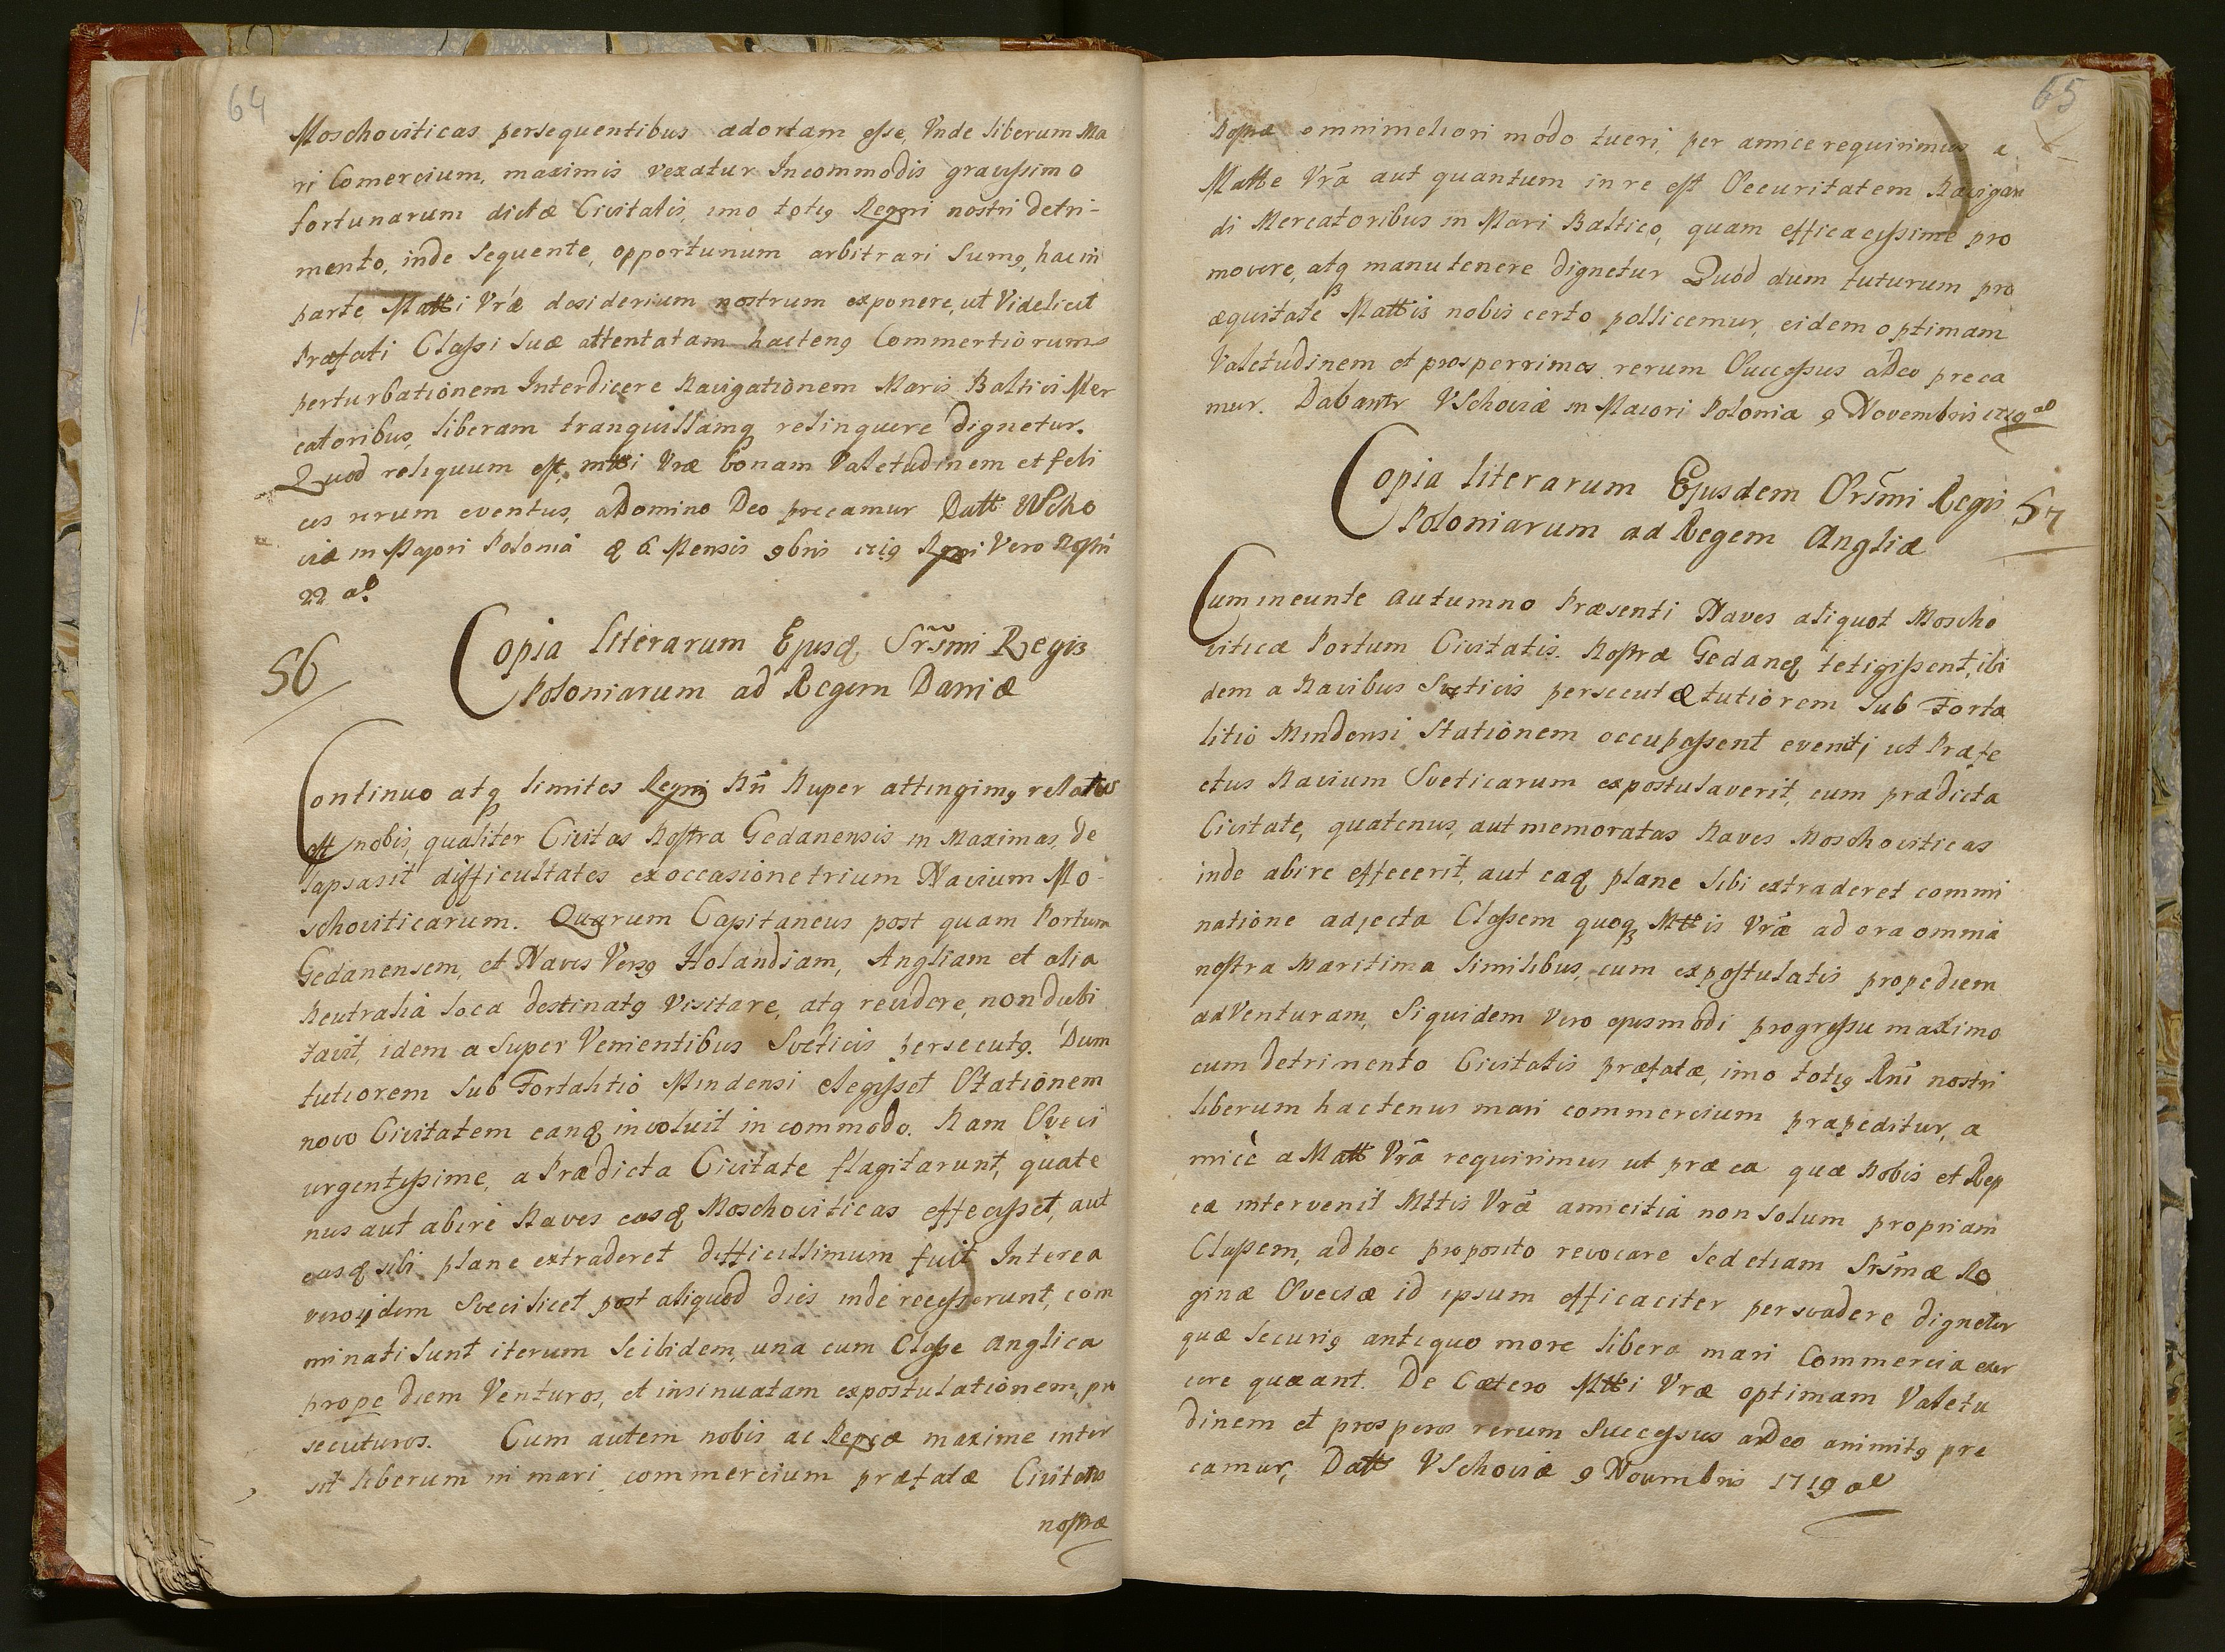 64
Moschoviticas persequentibus adortam esse, Unde liberum Ma
ri Comercium, maximis vexatur Incommodis gravissimo
fortunarum dictæ Civitatis, imo totiq Regni nostri detri-
mento, inde sequente, opportunum arbitrari Sumq, hac in
parte Matti Vræ desiderium nostrum exponere, ut Videlicet
Præfati Classi suæ attentatam hactenq Commertiorum
perturbationem Interdicere Navigationem Maris Baltici Mer
catoribus, liberam tranquillamq relinquere dignetur.
Quod reliquum est, mtti Vræ bonam Valetudinem et feli
ces rerum eventus, a Domino Deo precamur Datt WScho
viæ in Majori Polonia 6 Mensis 9bris 1719 Regni Vero Nostri
22 al
56
Copia literarum Ejusq Srsmi Regis
Poloniarum ad Regem Daniæ
Continuo atq limites Regni Nri Nuper attingimq relatus
est nobis, qualiter Civitas Nostra Gedanensis in Maximas de
lapsa sit difficultates ex occasione trium Navium Mo-
schoviticarum. Quarum Capitaneus post quam Portum
Gedanensem, et Naves Versq Holandiam, Angliam et alia
Neutralia loca destinatq Visitare, atq revidere, non dubi
tavit, idem a Super Venientibus Sveticis persecutq. Dum
tutiorem sub Fortalitio Mindensi elegisset Stationem
novo Civitatem eanq involuit in commodo. Nam Sveci
urgentissime, a Prædicta Civitate flagitarunt, quate
nus aut abire Naves easq Moschoviticas effecisset, aut
easq sibi plane extraderet difficillimum fuit Interea
vero ijdem Sveci licet post aliquod dies inde recesserunt, com
minati Sunt iterum Se ibidem, una cum Classe Anglica
prope diem Venturos, et insinuatam expostulationem, pro
secuturos. Cum autem nobis ac Repcæ maxime inter
sit liberum in mari commercium præfatæ Civitatis
nostræ
65
Nostræ omni meliori modo tueri, per amice requirimus a
Matte Vra aut quantum in re est Securitatem Navigan
di Mercatoribus in Mari Baltico, quam efficacissime pro
movere, atq manutenere dignetur Quod dum futurum pro
æquitate Mattis nobis certo pollicemur, eidem optimam
Valetudinem et prosperrimos rerum Successus a Deo preca
mur. Dabantr VSchoviæ in Maiori Polonia 9 Novembris 1719 al
Copia literarum Ejusdem Srsmi Regis
57
Poloniarum ad Regem Angliæ
Cum ineunte autumno Præsenti Naves aliquot Moscho
viticæ Portum Civitatis Nostræ Gedanq tetigissent, ibi
dem a Navibus Sveticis persecutæ tutiorem Sub Forta
litio Mindensi Stationem occupassent evenit, ut Præfe
ctus Navium Sveticarum expostulaverit, cum prædicta
Civitate, quatenus, aut memoratas Naves Moschoviticas
inde abire effecerit, aut eaq plane sibi extraderet commi
natione adjecta Classem quoq Mttis Vræ ad ora omnia
nostra Maritima similibus, cum expostulatis propediem
adVenturam, Siquidem Vero ejusmodi progressu maximo
cum detrimento Civitatis præfatæ, imo totiq Rni nostri
liberum hactenus mari commercium præpeditur, a
micè a Matt Vra requirimus ut præ ea quæ Nobis et Rep
cæ intervenit Mttis Vræ amicitia non solum propriam
Classem, ad hoc proposito revocare sed etiam Srsmæ Re
ginæ Sveciæ id ipsum efficaciter persvadere dignetur
quæ securiq antiquo more libera mari Commercia exer
cere queant. De Cætero Mtti Vræ optimam Valetu
dinem et prosperos rerum Successus a deo animitq pre
camur, Datt VSchoviæ 9 Novembris 1719 al